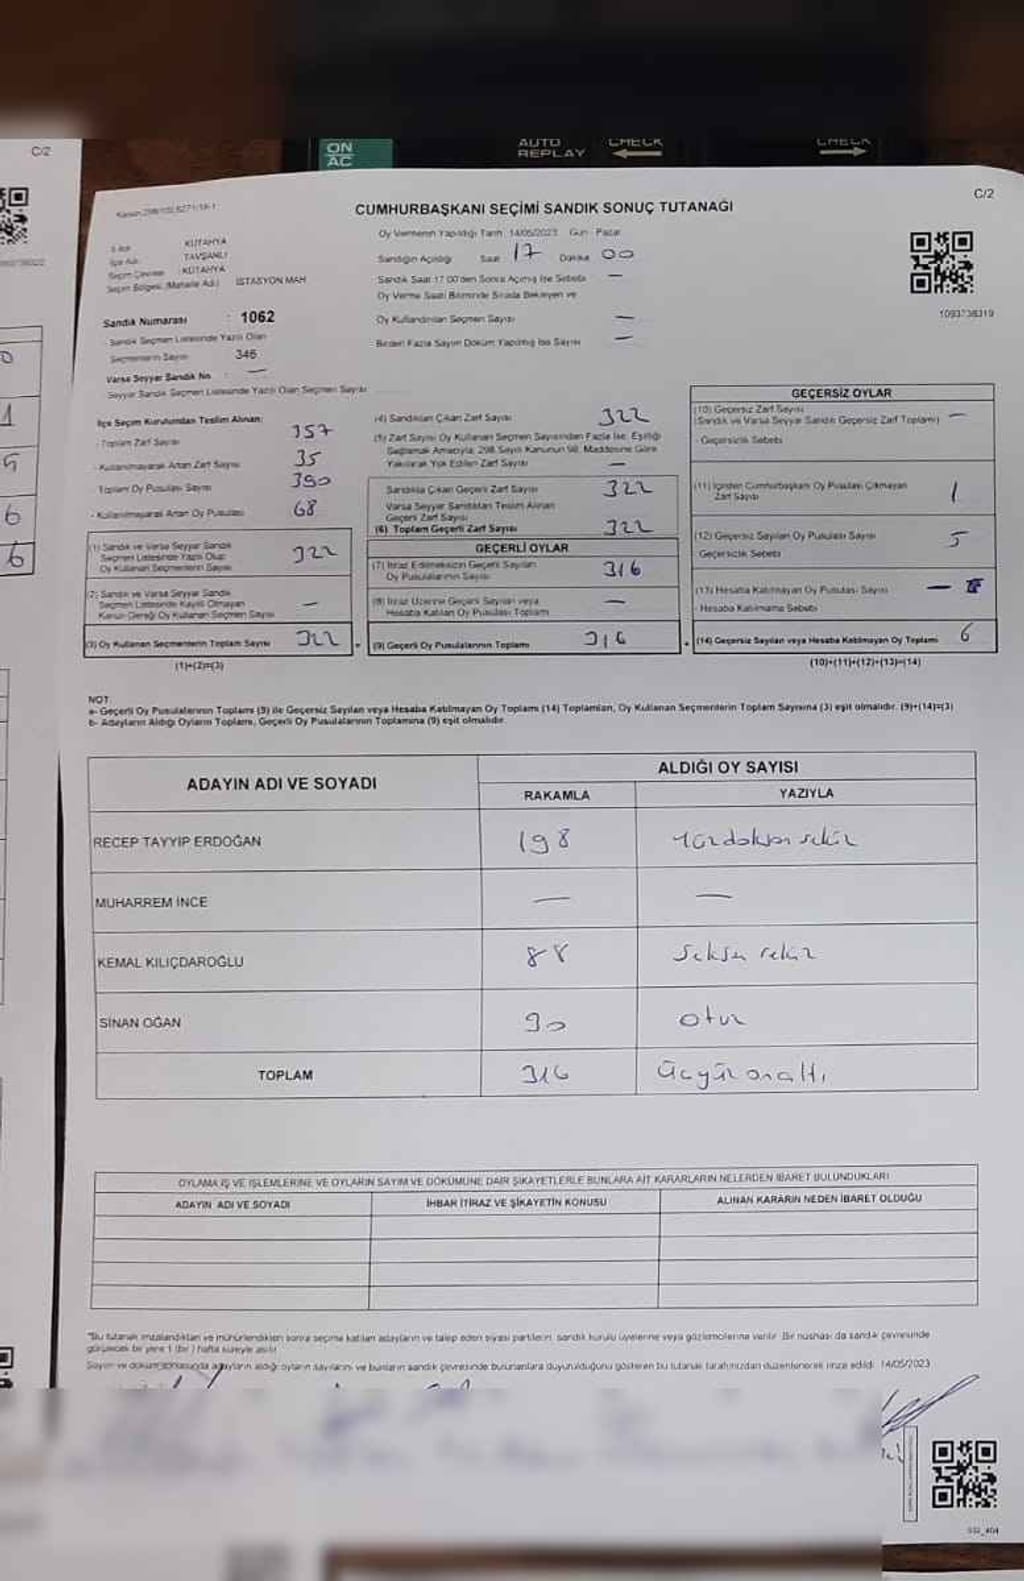 ON
AC
AUTO
REPLAY
CHECK
CHECK
C/2
C/2
CUMHURBAŞKANI SEÇİMİ SANDIK SONUÇ TUTANAĞI
Oy Vermenin Yapıldığı Tarih 14/05/2023 Gün Pazar
KÜTAHYA
İlçe Adı TAVŞANLI
Seçim Çevresi KÜTAHYA
Seçim Bölgesi (Mahalle Adı) İSTASYON MAH
Sandığın Açıldığı Saat 17 Dakika 00
Sandık Saat 17.00'den Sonra Açılmış İse Sebebi —
Oy Verme Saati Bitiminde Sırada Bekleyen ve
Oy Kullandırılan Seçmen Sayısı —
Birden Fazla Sayım Döküm Yapılmış İse Sayısı —
1093738319
Sandık Numarası : 1062
Sandık Seçmen Listesinde Yazılı Olan
Seçmenlerin Sayısı 346
Varsa Seyyar Sandık No : —
Seyyar Sandık Seçmen Listesinde Yazılı Olan Seçmen Sayısı
İlçe Seçim Kurulundan Teslim Alınan:
- Toplam Zarf Sayısı 357
- Kullanılmayarak Artan Zarf Sayısı 35
Toplam Oy Pusulası Sayısı 390
- Kullanılmayarak Artan Oy Pusulası 68
(1) Sandık ve Varsa Seyyar Sandık
Seçmen Listesinde Yazılı Olup
Oy Kullanan Seçmenlerin Sayısı 322
(2) Sandık ve Varsa Seyyar Sandık
Seçmen Listesinde Kayıtlı Olmayan
Kanun Gereği Oy Kullanan Seçmen Sayısı —
(3) Oy Kullanan Seçmenlerin Toplam Sayısı 322
(1)+(2)=(3)
(4) Sandıktan Çıkan Zarf Sayısı 322
(5) Zarf Sayısı Oy Kullanan Seçmen Sayısından Fazla İse, Eşitliği
Sağlamak Amacıyla, 298 Sayılı Kanunun 98. Maddesine Göre
Yakılarak Yok Edilen Zarf Sayısı —
Sandıkta Çıkan Geçerli Zarf Sayısı 322
Varsa Seyyar Sandıktan Teslim Alınan
Geçerli Zarf Sayısı
(6) Toplam Geçerli Zarf Sayısı 322
GEÇERLİ OYLAR
(7) İtiraz Edilmeksizin Geçerli Sayılan
Oy Pusulalarının Sayısı 316
(8) İtiraz Üzerine Geçerli Sayılan veya
Hesaba Katılan Oy Pusulası Toplamı —
(9) Geçerli Oy Pusulalarının Toplamı 316
GEÇERSİZ OYLAR
(10) Geçersiz Zarf Sayısı
(Sandık ve Varsa Seyyar Sandık Geçersiz Zarf Toplamı) —
- Geçersizlik Sebebi
(11) İçinden Cumhurbaşkanı Oy Pusulası Çıkmayan
Zarf Sayısı 1
(12) Geçersiz Sayılan Oy Pusulası Sayısı 5
Geçersizlik Sebebi
(13) Hesaba Katılmayan Oy Pusulası Sayısı —
- Hesaba Katılmama Sebebi
(14) Geçersiz Sayılan veya Hesaba Katılmayan Oy Toplamı 6
(10)+(11)+(12)+(13)=(14)
NOT:
a- Geçerli Oy Pusulalarının Toplamı (9) ile Geçersiz Sayılan veya Hesaba Katılmayan Oy Toplamı (14) Toplamları, Oy Kullanan Seçmenlerin Toplam Sayısına (3) eşit olmalıdır. (9)+(14)=(3)
b- Adayların Aldığı Oyların Toplamı, Geçerli Oy Pusulalarının Toplamına (9) eşit olmalıdır.
ADAYIN ADI VE SOYADI
ALDIĞI OY SAYISI
RAKAMLA YAZIYLA
RECEP TAYYIP ERDOĞAN 198 Yüzdoksan sekiz
MUHARREM İNCE — —
KEMAL KILIÇDAROĞLU 88 Seksen sekiz
SİNAN OĞAN 30 otuz
TOPLAM 316 Üçyüz onaltı
OYLAMA İŞ VE İŞLEMLERİNE VE OYLARIN SAYIM VE DÖKÜMÜNE DAİR ŞİKAYETLERLE BUNLARA AİT KARARLARIN NELERDEN İBARET BULUNDUKLARI
ADAYIN ADI VE SOYADI
İHBAR İTİRAZ VE ŞİKAYETİN KONUSU
ALINAN KARARIN NEDEN İBARET OLDUĞU
"Bu tutanak imzalandıktan ve mühürlendikten sonra seçime katılan adayların ve talep eden siyasi partilerin, sandık kurulu üyelerine veya gözlemcilerine verilir. Bir nüshası da sandık çevresinde
görülecek bir yere 1 (bir) hafta süreyle asılır.
Sayım ve döküm sonucunda adayların aldığı oyların sayılarını ve bunların sandık çevresinde bulunanlara duyurulduğunu gösteren bu tutanak tarafımızdan düzenlenerek imza edildi. 14/05/2023